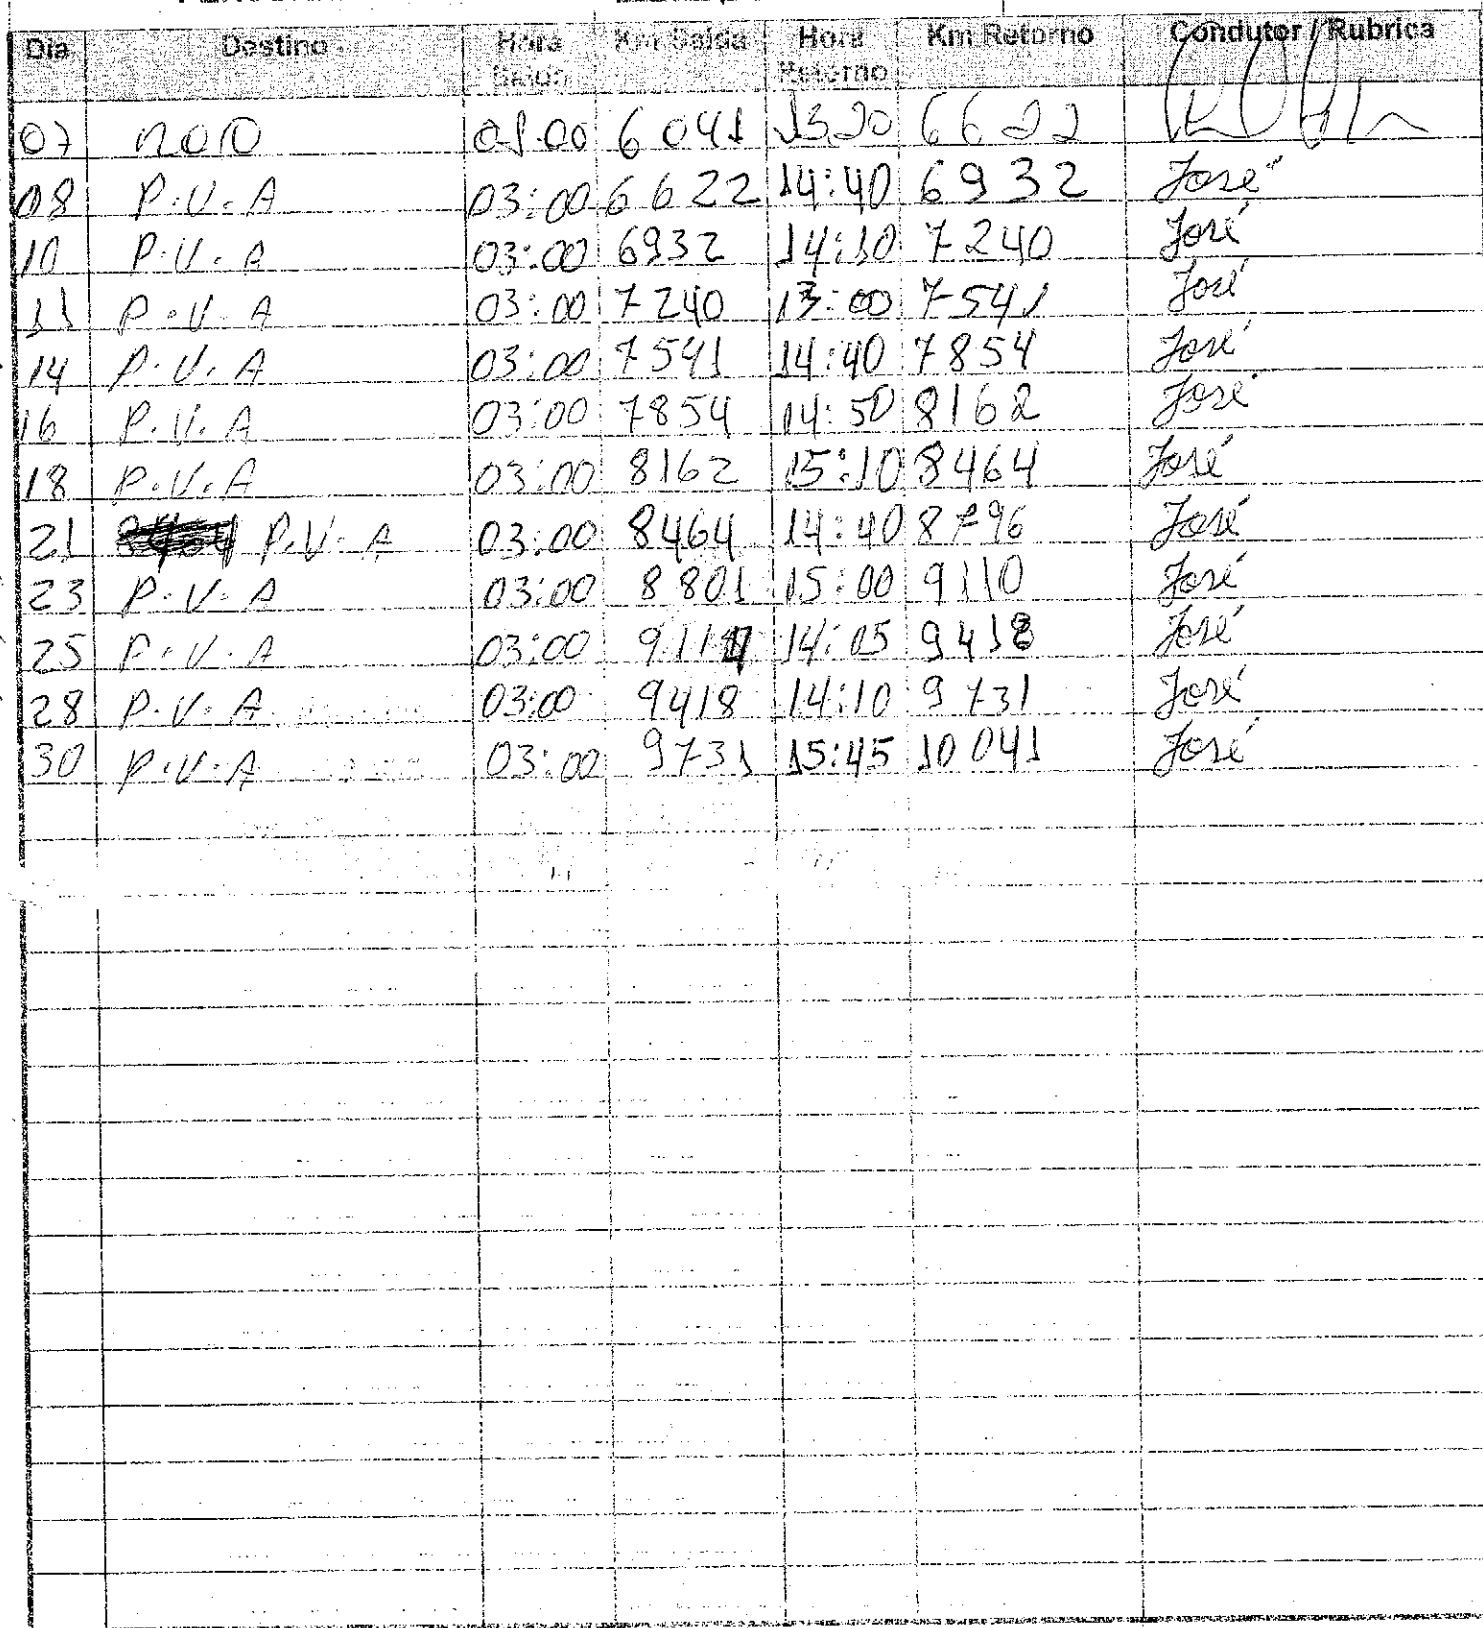 Dia Destino Hora Saída Km Saída Hora Retorno Km Retorno Condutor / Rubrica
07 ROO 01:00 6041 13:20 6622
08 P.V.A 03:00 6622 14:40 6932 José
10 P.V.A 03:00 6932 14:10 7240 José
11 P.V.A 03:00 7240 13:00 7541 José
14 P.V.A 03:00 7541 14:40 7854 José
16 P.V.A 03:00 7854 14:50 8162 José
18 P.V.A 03:00 8162 15:10 8464 José
21 P.V.A 03:00 8464 14:40 8796 José
23 P.V.A 03:00 8801 15:00 9110 José
25 P.V.A 03:00 14:05 9418 José
28 P.V.A 03:00 9418 14:10 9731 José
30 P.V.A 03:00 9731 15:45 10041 José